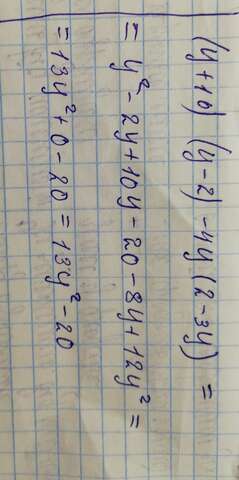 (y+10) (y-2) -4y (2-3y) =
= y² - 2y + 10y - 20 - 8y + 12y² =
= 13y² + 0 - 20 = 13y² - 20